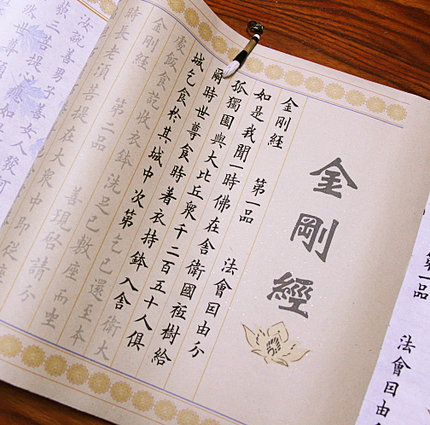 金剛經
金剛經 第一品 法會因由分
如是我聞一時佛在舍衛國祗樹給
孤獨園與大比丘眾千二百五十人俱
爾時世尊食時著衣持鉢入舍衛大
城乞食於其城中次第乞已還至本
處飯食訖收衣鉢洗足已敷座而坐
金剛經 第二品 善現啟請分
時長老須菩提在大眾中即從
善男子善女人發阿
第一品 法會因由